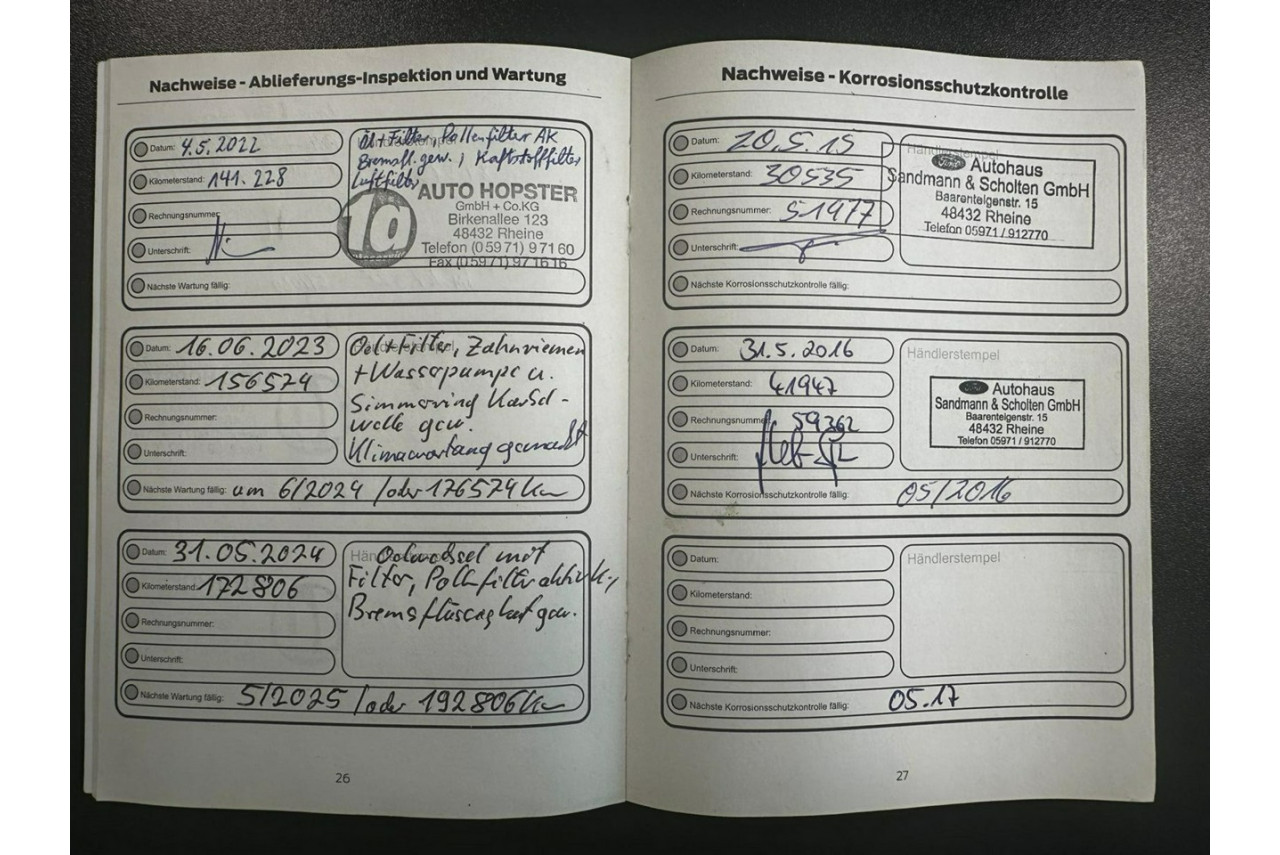 Nachweise - Ablieferungs-Inspektion und Wartung
Datum: 4.5.2022
Kilometerstand: 141.228
Rechnungsnummer:
Unterschrift:
Öl + Filter, Pollenfilter AK
Bremsfl. gew., Kaftstoffilter
Luftfilter
1a
AUTO HOPSTER
GmbH + Co.KG
Birkenallee 123
48432 Rheine
Telefon (05971) 97160
Fax (05971) 971616
Nächste Wartung fällig:
Datum: 16.06.2023
Kilometerstand: 156574
Rechnungsnummer:
Unterschrift:
Oel + Filter, Zahnriemen
+ Wasserpumpe u.
Simmering
welle gew.
Klimawartung gemacht
Nächste Wartung fällig: um 6/2024 / oder 176574 Km
Datum: 31.05.2024
Kilometerstand: 172806
Rechnungsnummer:
Unterschrift:
Oelwechsel mit
Filter, Pollenfilter
Bremsflüssigkeit gew.
Nächste Wartung fällig: 5/2025 / oder 192806 Km
26
Nachweise - Korrosionsschutzkontrolle
Datum: 20.5.15
Kilometerstand: 30535
Rechnungsnummer: 51477
Unterschrift:
Händlerstempel
Ford Autohaus
Sandmann & Scholten GmbH
Baarentelgenstr. 15
48432 Rheine
Telefon 05971 / 912770
Nächste Korrosionsschutzkontrolle fällig:
Datum: 31.5.2016
Kilometerstand: 41947
Rechnungsnummer: 59362
Unterschrift:
Händlerstempel
Autohaus
Sandmann & Scholten GmbH
Baarentelgenstr. 15
48432 Rheine
Telefon 05971 / 912770
Nächste Korrosionsschutzkontrolle fällig: 05/2016
Datum:
Kilometerstand:
Rechnungsnummer:
Unterschrift:
Händlerstempel
Nächste Korrosionsschutzkontrolle fällig: 05.17
27